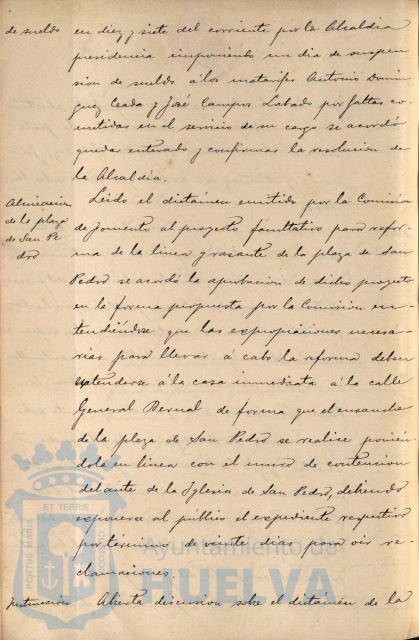 de sueldo
en diez y siete del corriente por la Alcaldia
presidencia imponiendo un dia de suspen-
sion de sueldo á los matarifes Antonio Domin
guez Ceada y José Campos Labado por faltas co-
metidas en el servicio de su cargo se acordó
quedar enterado y confirmar la resolucion de
la Alcaldia.
Alineacion
de la plaza
de San Pe
dro
Leido el dictámen emitido por la Comision
de fomento al proyecto facultativo para refor-
ma de la linea y rasante de la plaza de San
Pedro se acordó la aprobacion de dicho proyecto
en la forma propuesta por la Comision en-
tendiéndose que las expropiaciones necesa-
rias para llevar á cabo la reforma deben
extenderse á la casa inmediata á la calle
General Bernal de forma que el ensanche
de la plaza de San Pedro se realice ponién
dola en linea con el muro de contencion
delante de la Iglesia de San Pedro, debiendo
exponerse al publico el expediente respectivo
por término de veinte dias para oir re-
clamaciones.
Abierta discusion sobre el dictámen de la
Ayuntamiento de
HUELVA
PORTUS MARIS
ET TERRÆ
CUSTODIA